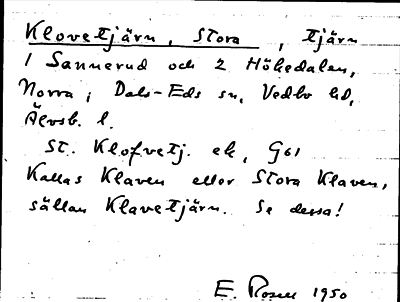 Klovetjärn, Stora, tjärn
1 Sannerud och 2 Hökedalen,
Norra; Dals-Eds sn, Vedbo hd,
Älvsb. l.
St. Klofvetj. ek, G61
Kallas Klaven eller Stora Klaven,
sällan Klavetjärn. Se dessa!
E. Rosell 1950